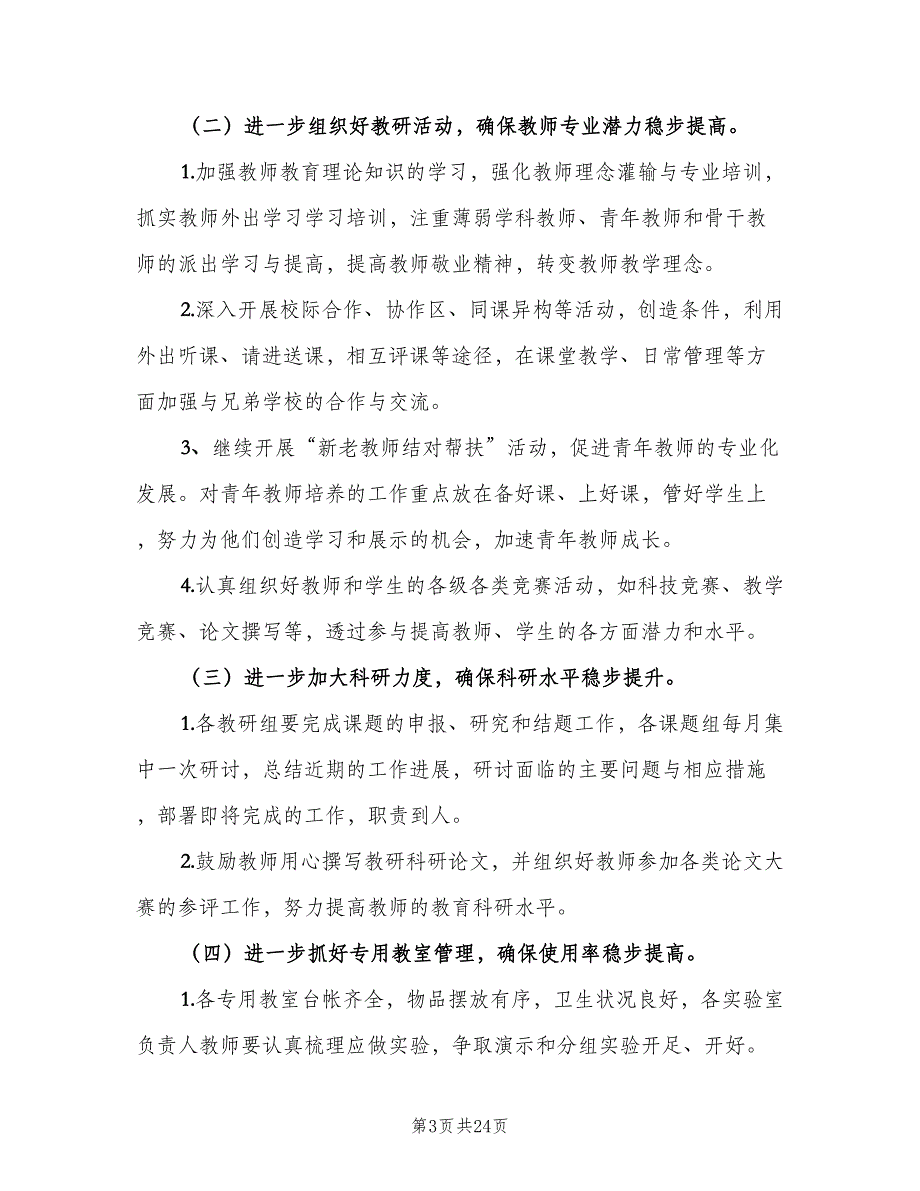 （二）进一步组织好教研活动，确保教师专业潜力稳步提高。
1.加强教师教育理论知识的学习，强化教师理念灌输与专业培训，
抓实教师外出学习学习培训，注重薄弱学科教师、青年教师和骨干教
师的派出学习与提高，提高教师敬业精神，转变教师教学理念。
2.深入开展校际合作、协作区、同课异构等活动，创造条件，利用
外出听课、请进送课，相互评课等途径，在课堂教学、日常管理等方
面加强与兄弟学校的合作与交流。
3、继续开展“新老教师结对帮扶”活动，促进青年教师的专业化
发展。对青年教师培养的工作重点放在备好课、上好课，管好学生上
，努力为他们创造学习和展示的机会，加速青年教师成长。
4.认真组织好教师和学生的各级各类竞赛活动，如科技竞赛、教学
竞赛、论文撰写等，透过参与提高教师、学生的各方面潜力和水平。
（三）进一步加大科研力度，确保科研水平稳步提升。
1.各教研组要完成课题的申报、研究和结题工作，各课题组每月集
中一次研讨，总结近期的工作进展，研讨面临的主要问题与相应措施
，部署即将完成的工作，职责到人。
2.鼓励教师用心撰写教研科研论文，并组织好教师参加各类论文大
赛的参评工作，努力提高教师的教育科研水平。
（四）进一步抓好专用教室管理，确保使用率稳步提高。
1.各专用教室台帐齐全，物品摆放有序，卫生状况良好，各实验室
负责人教师要认真梳理应做实验，争取演示和分组实验开足、开好。
第3页共24页